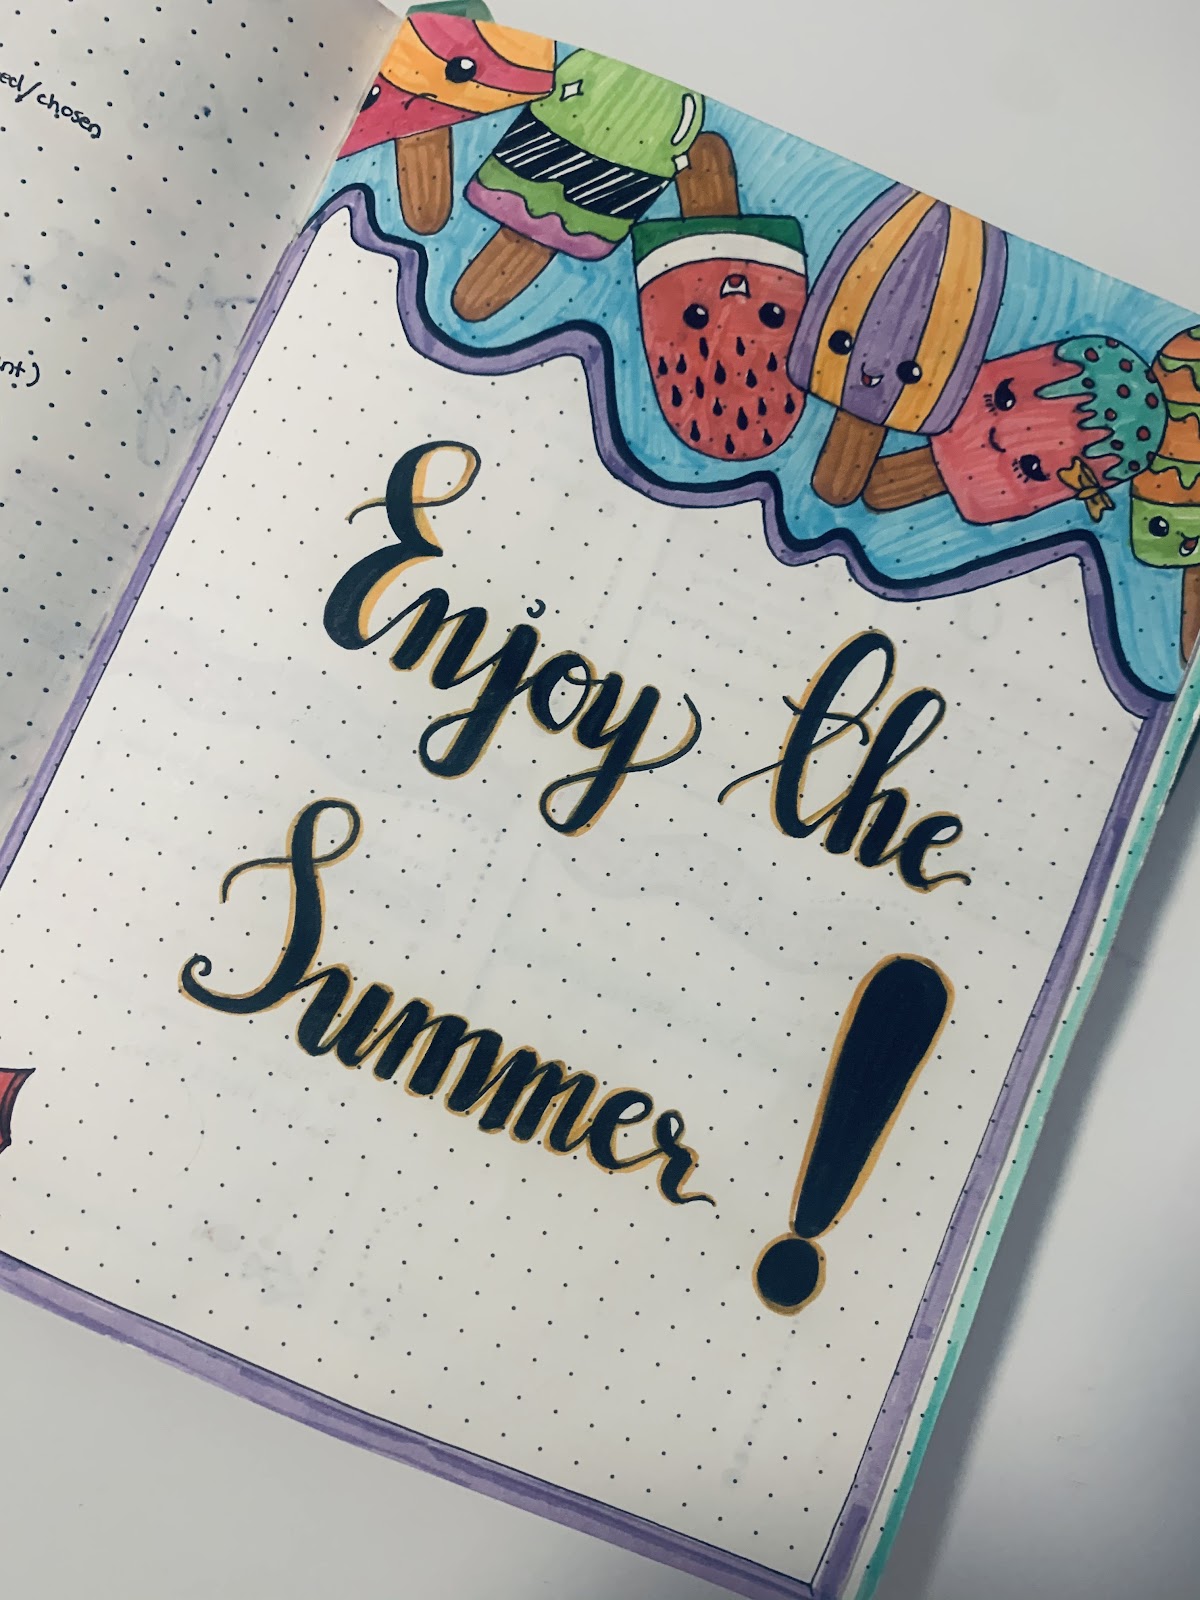 chosen
Enjoy the
Summer!